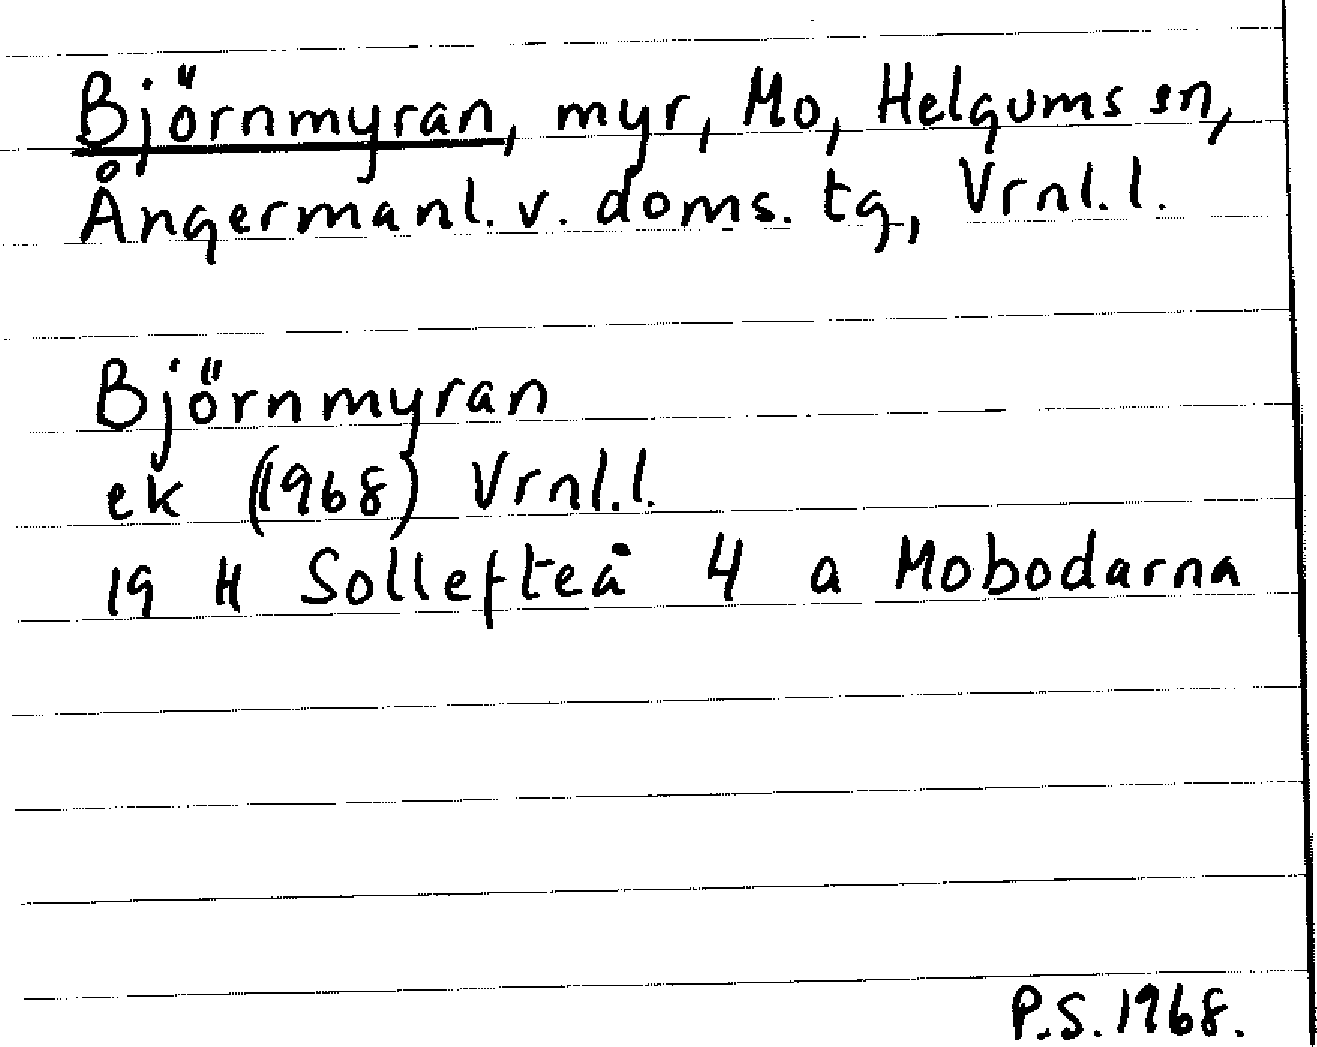 Björnmyran, myr, Mo, Helgums sn,
Ångermanl. v. doms. tg, Vrnl. l.
Björnmyran
ek (1968) Vrnl.l.
19 H Sollefteå 4 a Mobodarna
P.S. 1968.